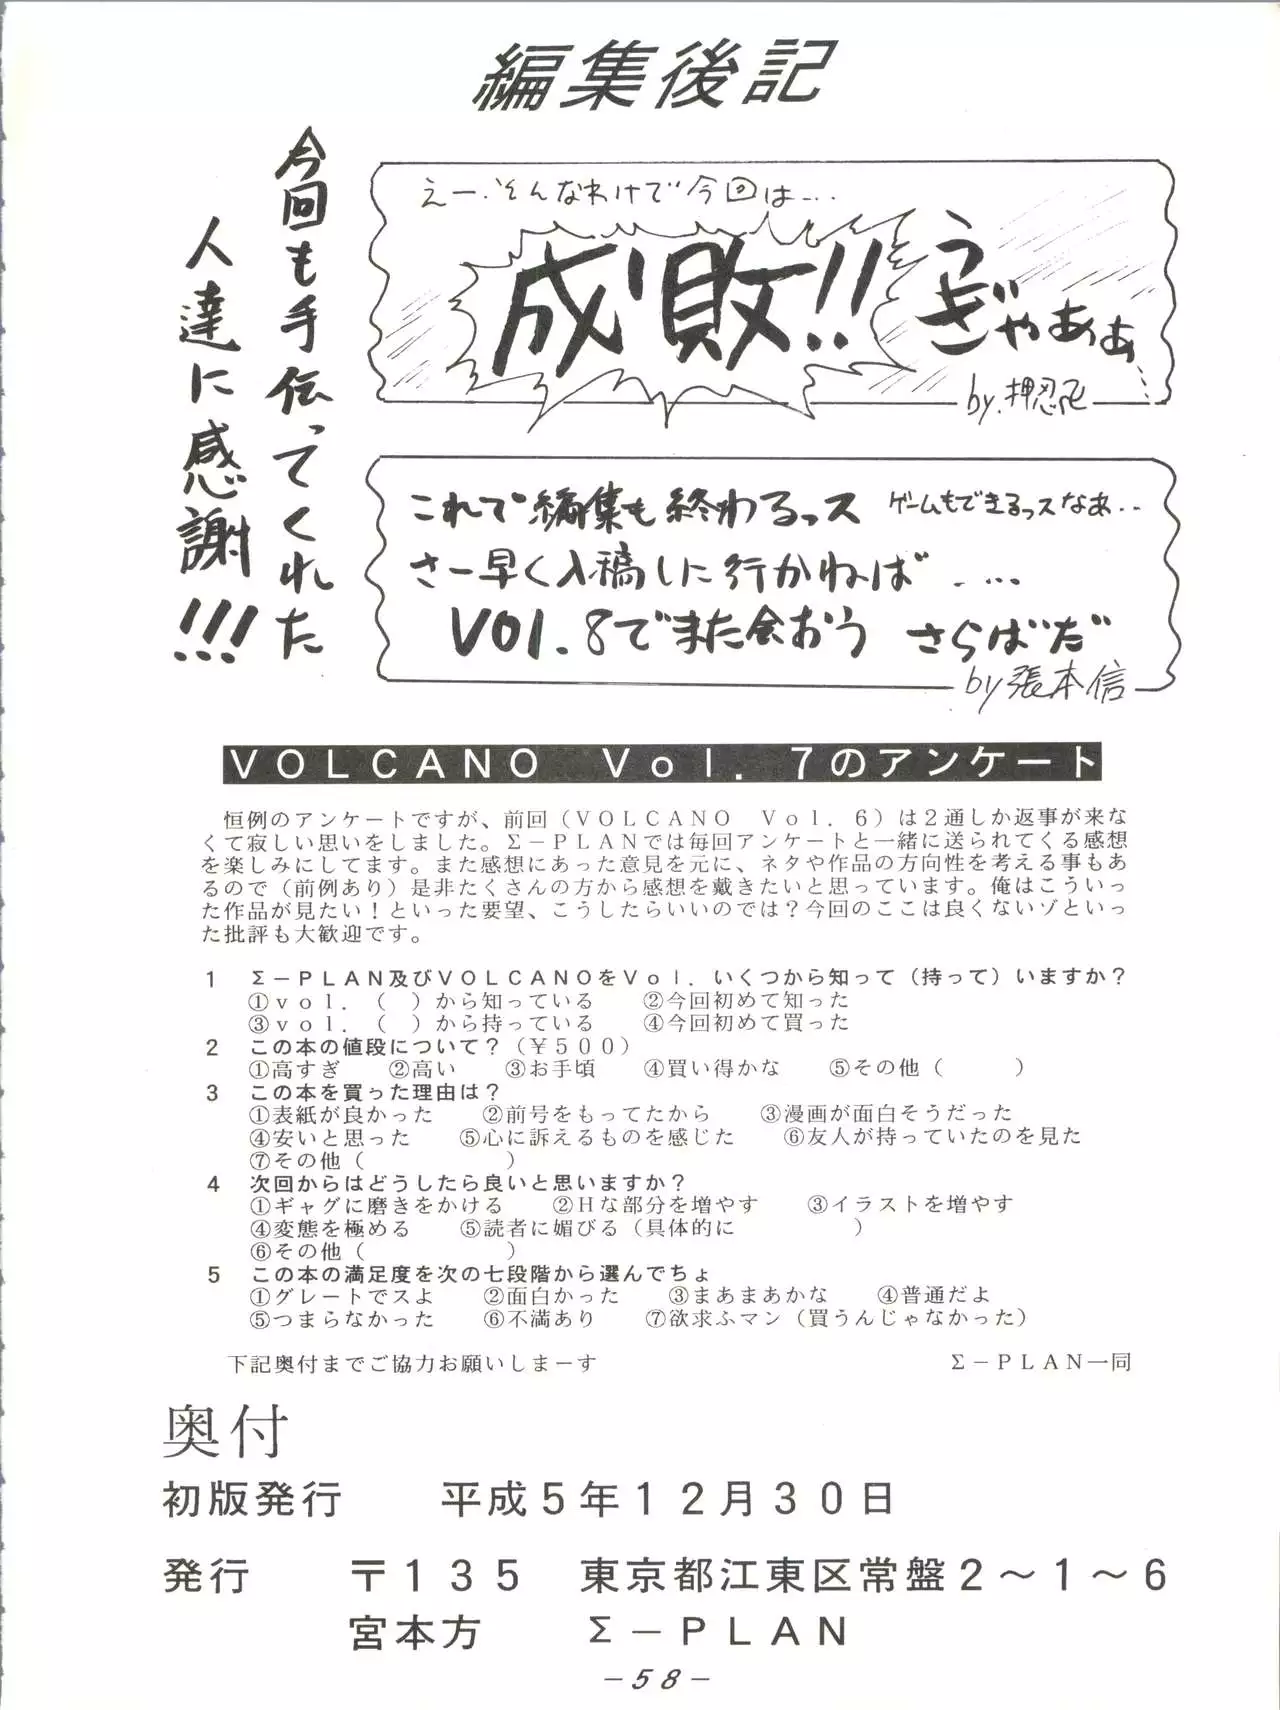 編集後記
今回も手伝ってくれた
人達に感謝!!!
えー、そんなわけで今回は・・・
成敗!!
うぎゃあぁ・・・
by.押忍
これで編集も終わるっス ゲームもできるっスなあ・・
さー早く入稿しに行かねば・・・・
VOl.8でまた会おう さらばだ
by 張本信
VOLCANO Vol.7のアンケート
恒例のアンケートですが、前回(VOLCANO Vol.6)は2通しか返事が来な
くて寂しい思いをしました。Σ-PLANでは毎回アンケートと一緒に送られてくる感想
を楽しみにしてます。また感想にあった意見を元に、ネタや作品の方向性を考える事もあ
るので(前例あり)是非たくさんの方から感想を戴きたいと思っています。俺はこういっ
た作品が見たい!といった要望、こうしたらいいのでは?今回のここは良くないゾといっ
た批評も大歓迎です。
1 Σ-PLAN及びVOLCANOをVol.いくつから知って(持って)いますか?
①vol.( )から知っている ②今回初めて知った
③vol.( )から持っている ④今回初めて買った
2 この本の値段について?(¥500)
①高すぎ ②高い ③お手頃 ④買い得かな ⑤その他( )
3 この本を買った理由は?
①表紙が良かった ②前号をもってたから ③漫画が面白そうだった
④安いと思った ⑤心に訴えるものを感じた ⑥友人が持っていたのを見た
⑦その他( )
4 次回からはどうしたら良いと思いますか?
①ギャグに磨きをかける ②Hな部分を増やす ③イラストを増やす
④変態を極める ⑤読者に媚びる(具体的に )
⑥その他( )
5 この本の満足度を次の七段階から選んでちょ
①グレートでスよ ②面白かった ③まあまあかな ④普通だよ
⑤つまらなかった ⑥不満あり ⑦欲求ふマン(買うんじゃなかった)
下記奥付までご協力お願いしまーす Σ-PLAN一同
奥付
初版発行 平成5年12月30日
発行 〒135 東京都江東区常盤2~1~6
宮本方 Σ-PLAN
-58-